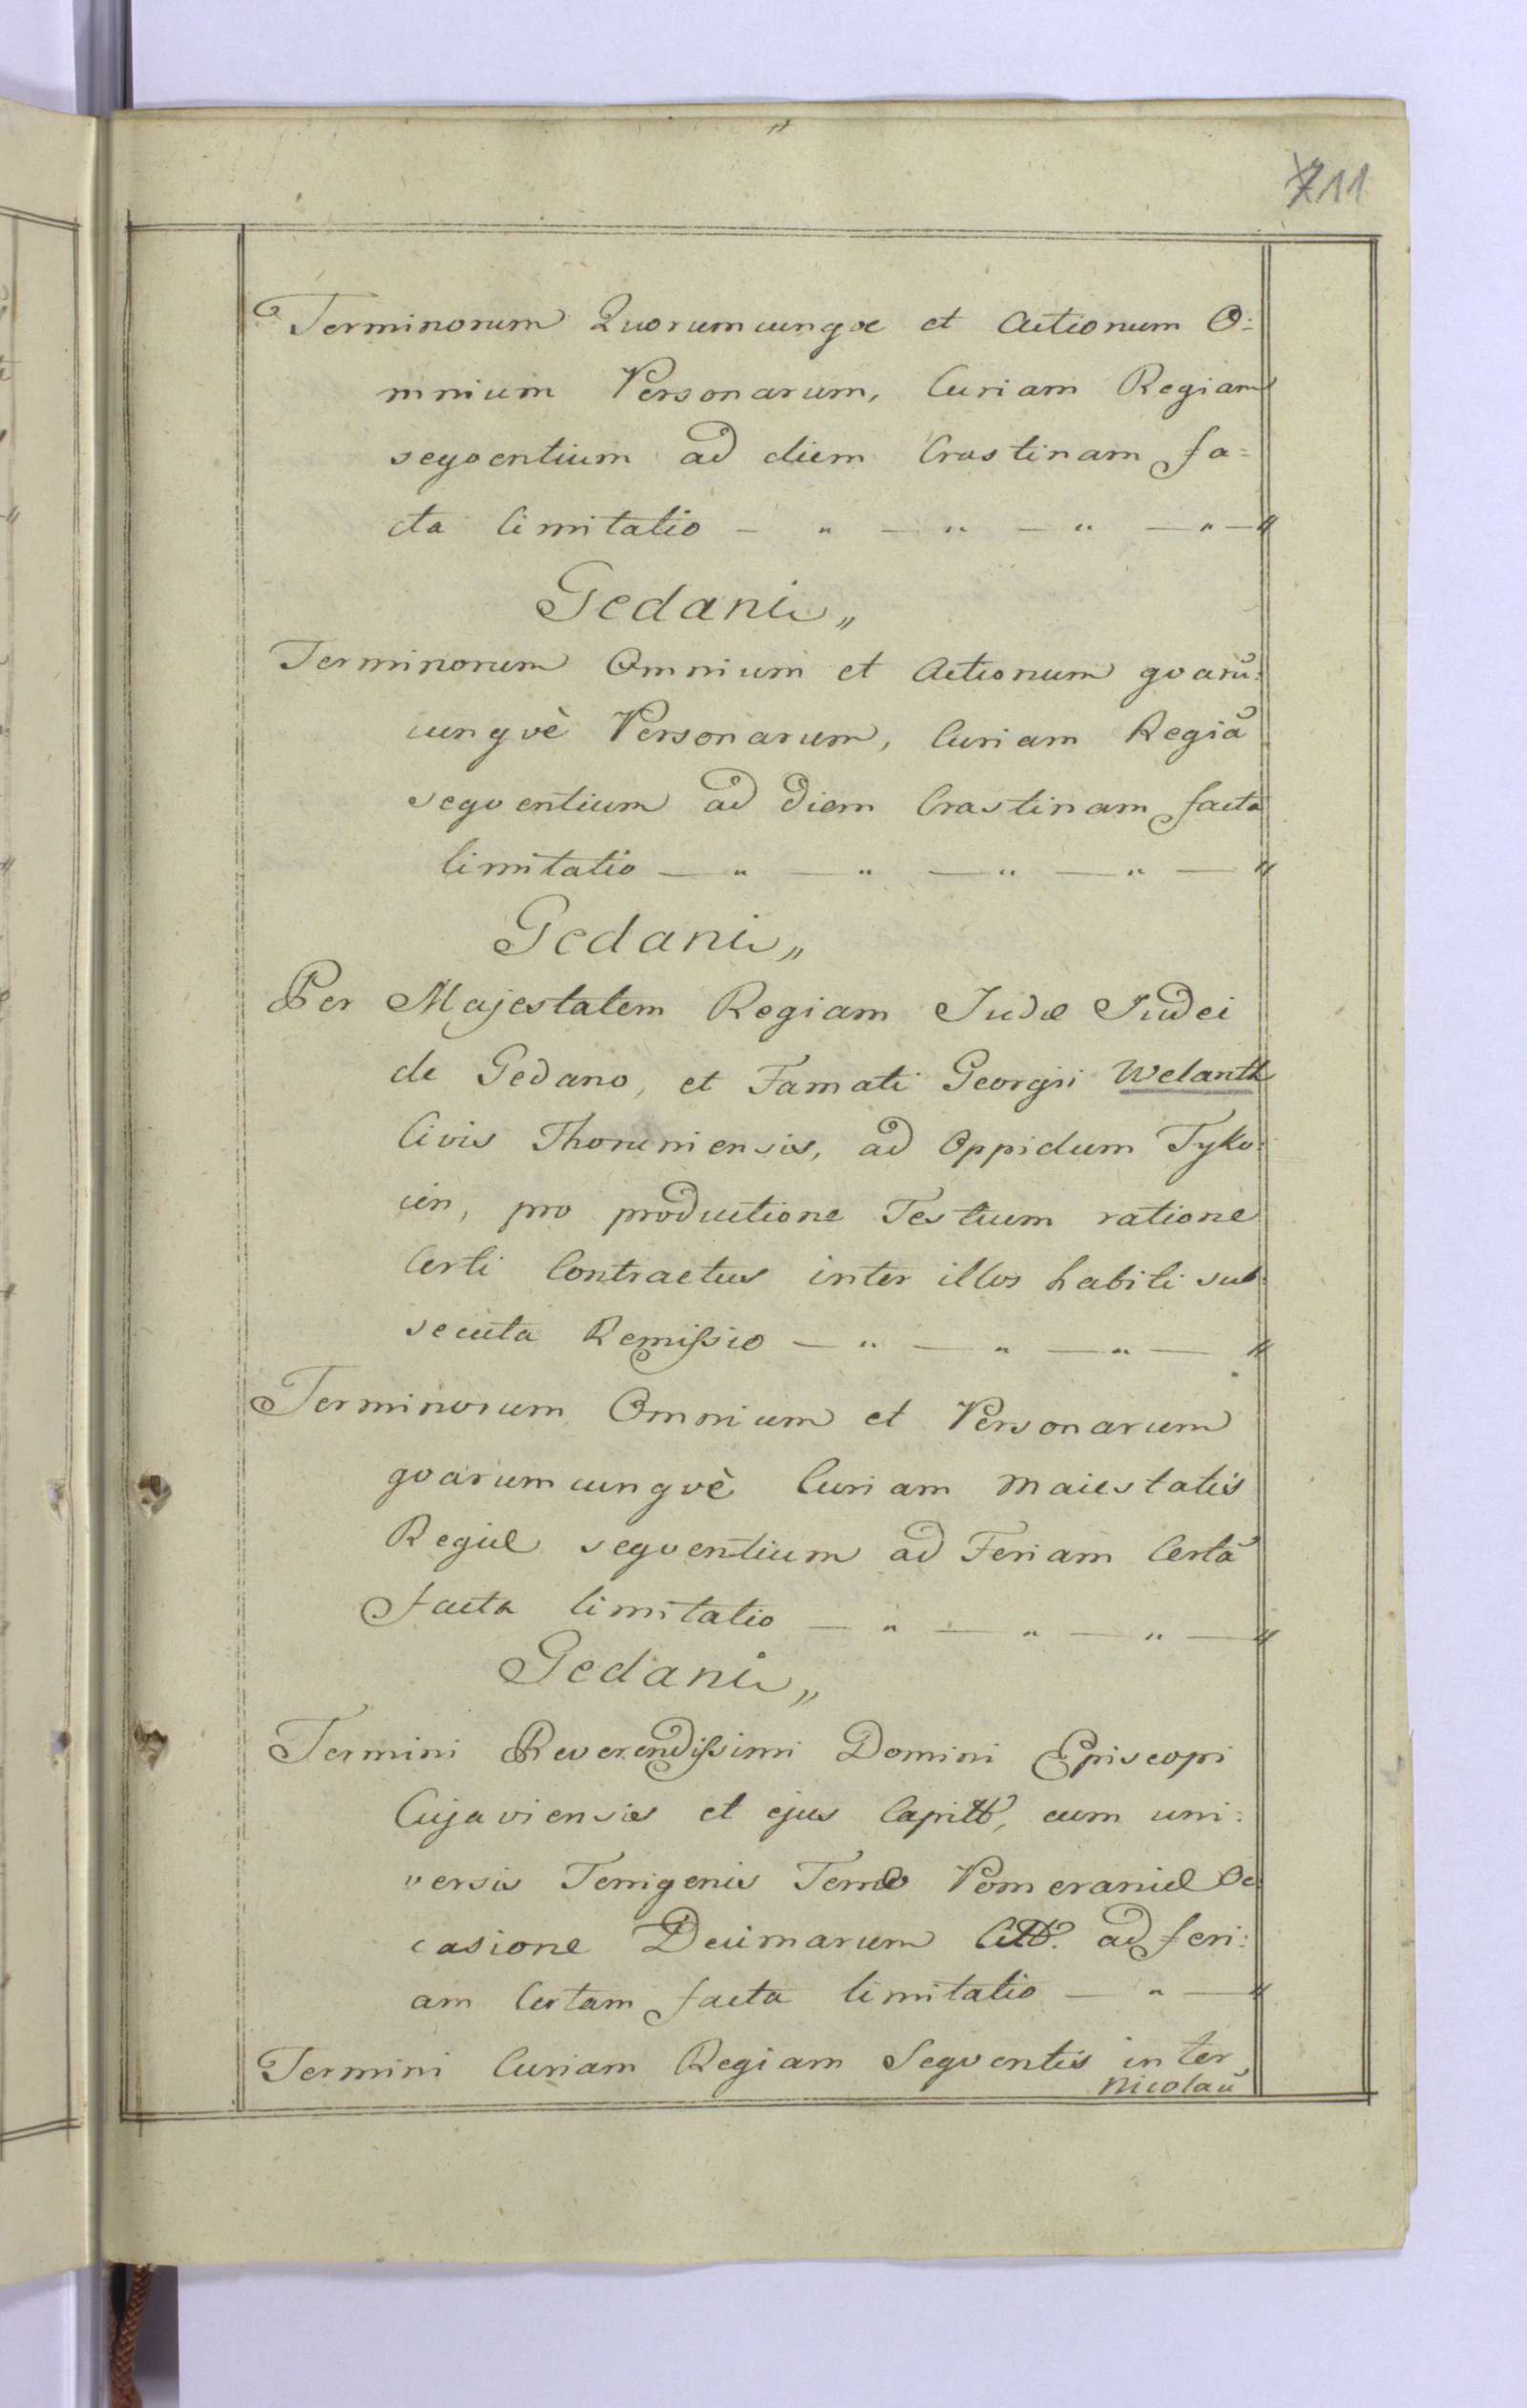 711
Terminorum Quorumcunqve et Actionum O=
mnium Personarum, Curiam Regiam
seqventium ad diem Crastinam fa=
cta limitatio - " - " - " - " - "
Gedani „
Terminorum Omnium et Actionum qvarũ:
cunqvè Personarum, Curiam Regiã
seqventium ad Diem Crastinam facta
limitatio - " - " - " - " - "
Gedani „
Per Majestatem Regiam Judæ Judei
de Gedano, et Famati Georgii Welanth
Civis Thoruniensis, ad Oppidum Tyko:
cin, pro productione Testium ratione
Certi Contractus inter illos habiti sub:
secuta Remißio - " - " - " - "
Terminorum Omnium et Personarum
qvarumcunqvè Curiam Maiestatis
Regiæ seqventium ad Feriam Certã
facta limitatio - " - " - " - "
Gedani „
Termini Reverendißimi Domini Episcopi
Cujaviensis et ejus Capitt, cum uni:
versis Terrigenis Terræ Pomeraniæ Oc
casione Decimarum Citt. ad feri:
am Certam facta limitatio - " - "
Termini Curiam Regiam Seqventis inter
Nicolaũ